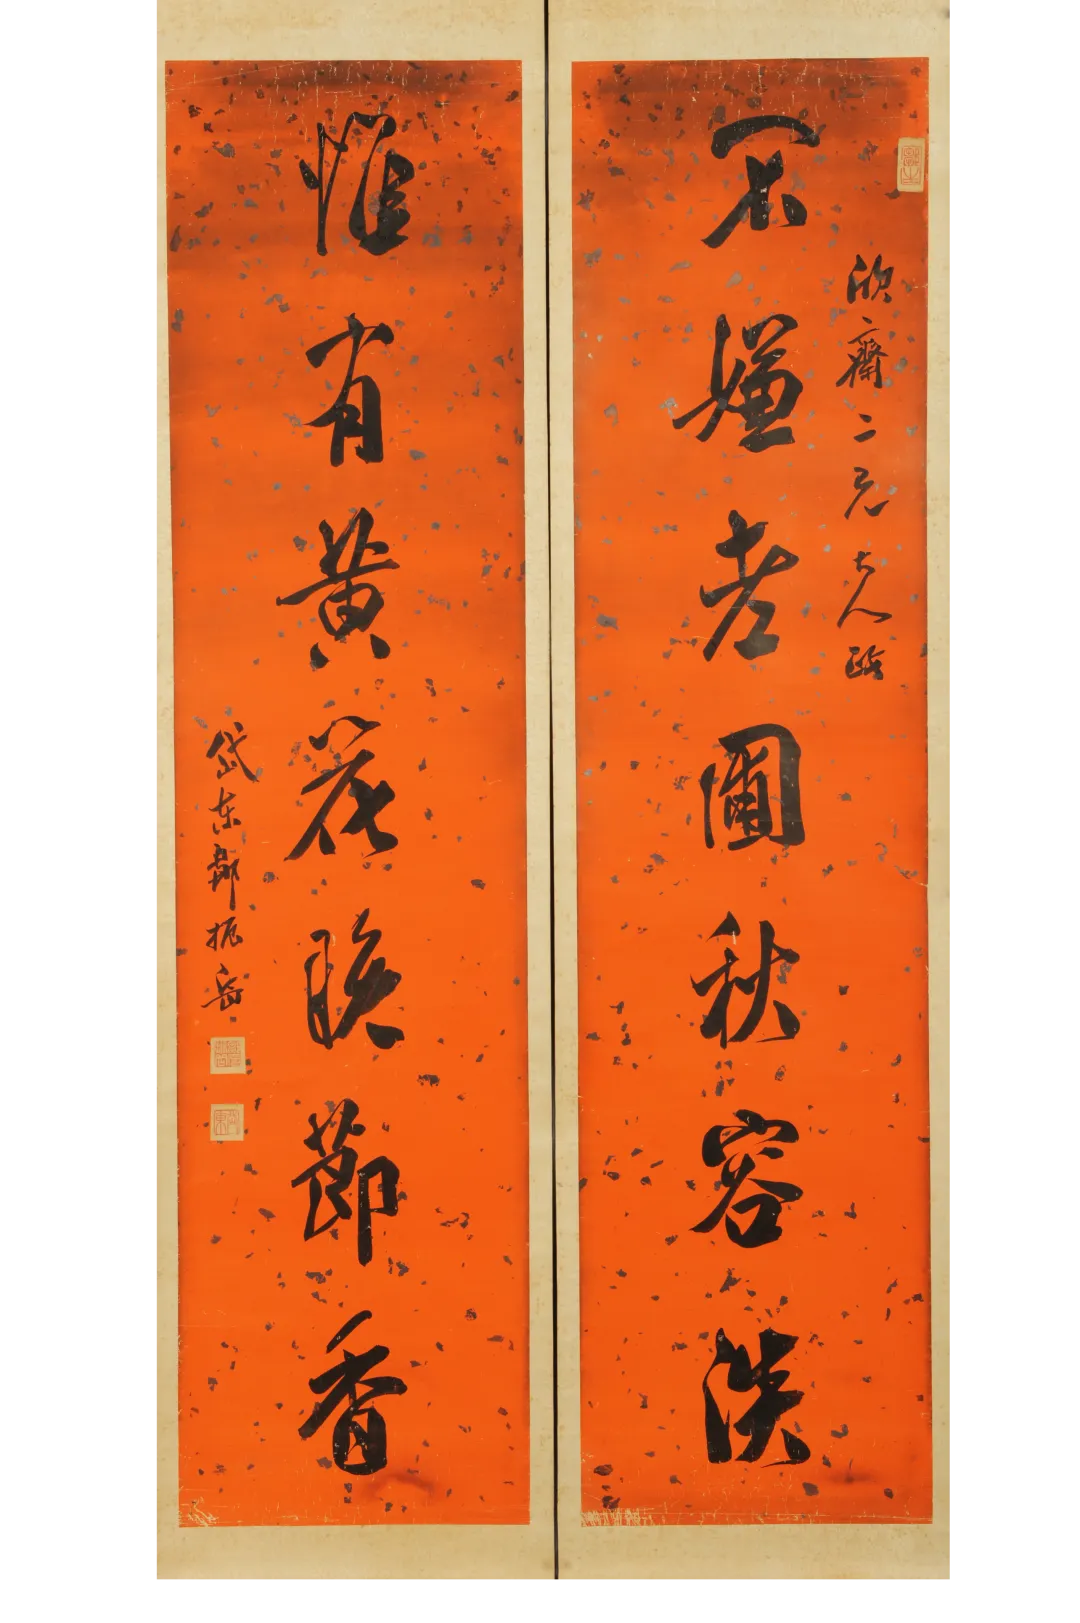 欣齋二兄大人政
不嫌老圃秋容淡
惟有黄花晚節香
岱东鄒振岳